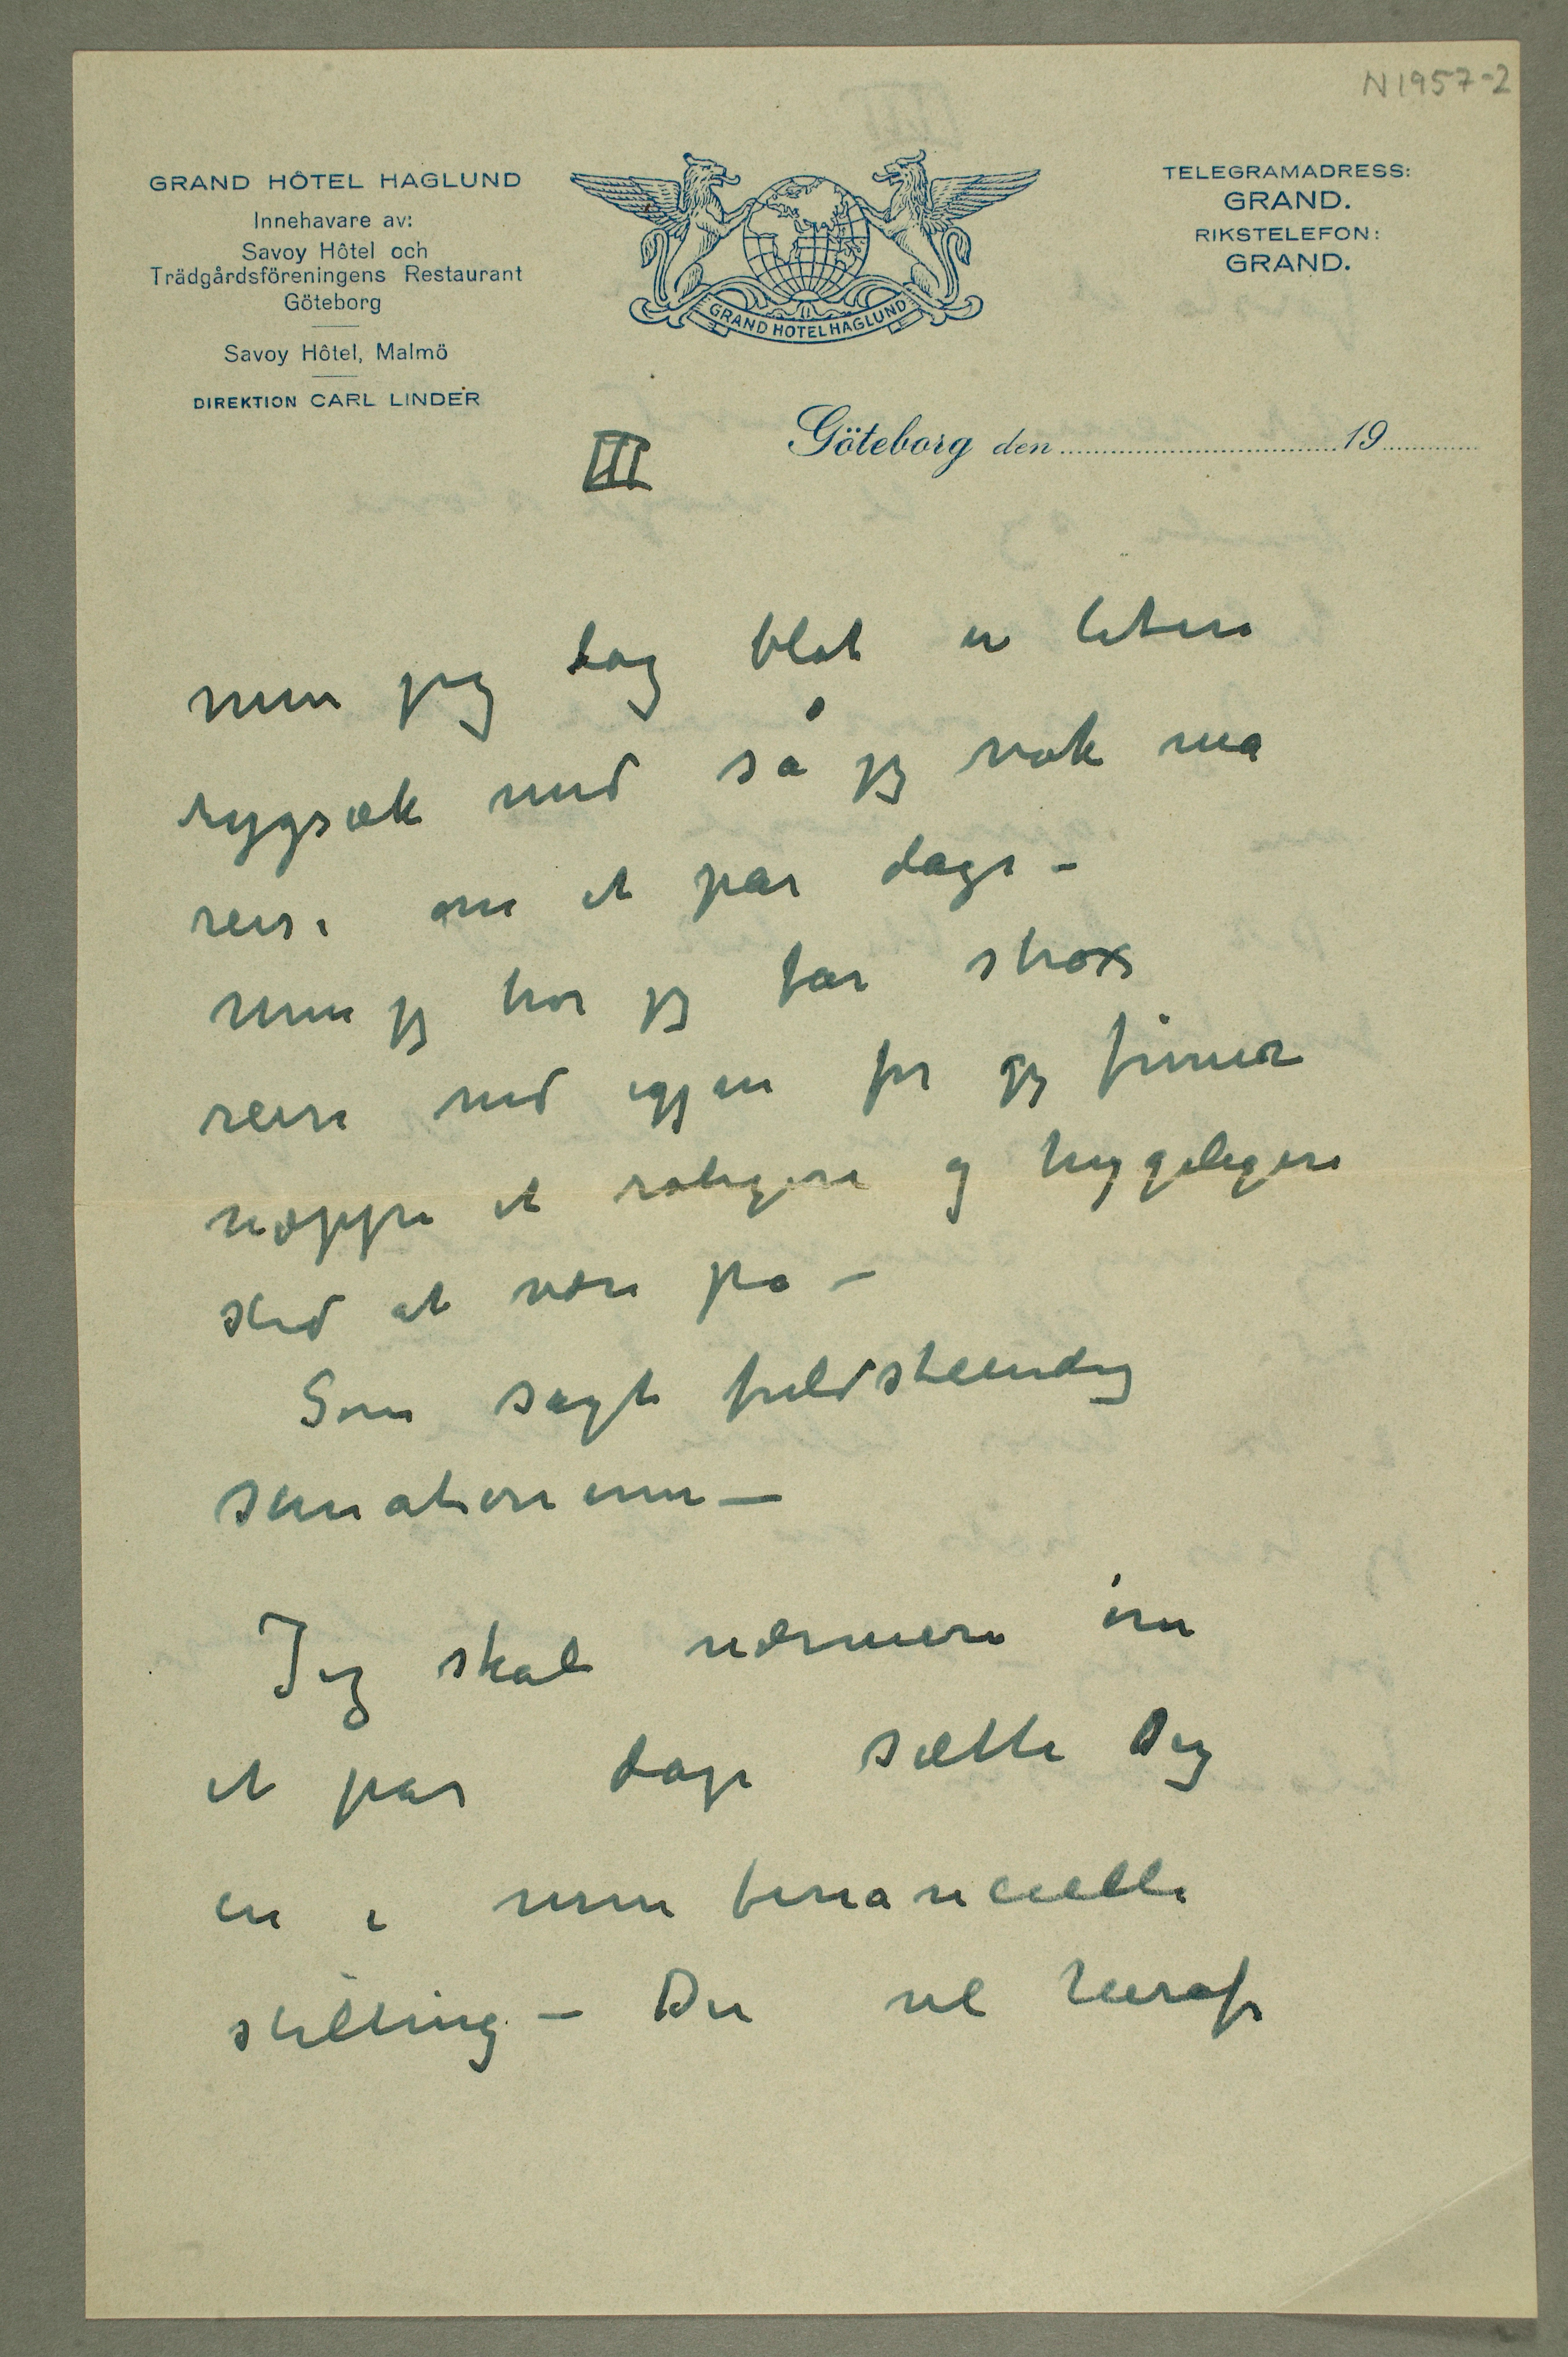 N 1957-2
GRAND HÔTEL HAGLUND
Innehavare av:
Savoy Hôtel och
Trädgårdsföreningens Restaurant
Göteborg
Savoy Hôtel, Malmö
DIREKTION CARL LINDER
GRAND HOTEL HAGLUND
TELEGRAMADRESS:
GRAND.
RIKSTELEFON:
GRAND.
Göteborg den 19
III
men jeg tog blot en liten
rygsæk med så jeg nok må
reise om et par dage –
Men jeg tror jeg tar strax
reise ned igjen for jeg finner
neppe et roligere og hyggeligere
sted at være på –
Som sagt fuldstændig
sanatorium –
Jeg skal nærmere om
et par dage sætte Dig
in i min financielle
stilling – Du vil heraf